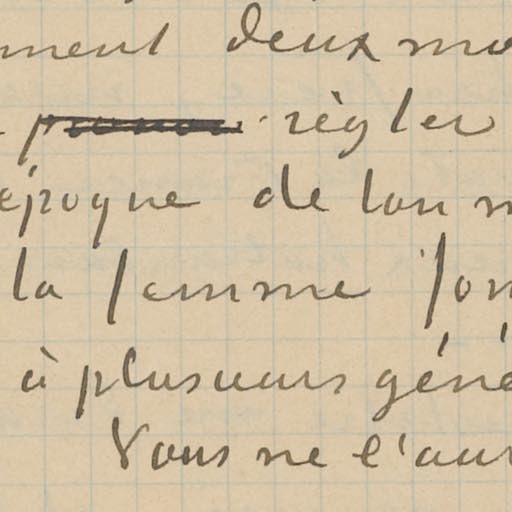 ment deux mo
règler
époque de lou m
la femme fon
à plusieurs géné
Vous ne l'aur